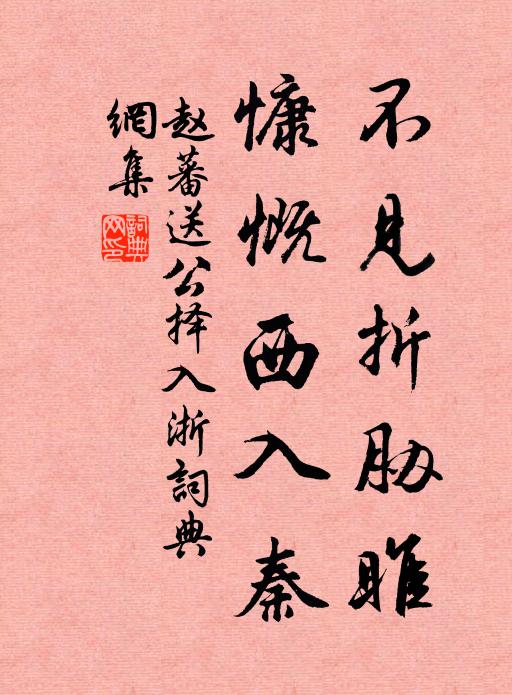 不见折胁睢
慷慨西入秦
赵蕃送公择入浙詞典
網集
詞典網印